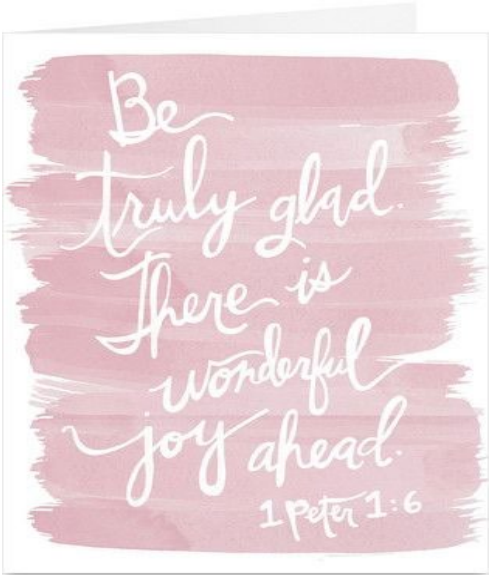 Be
truly glad.
There is
wonderful
joy ahead.
1 Peter 1:6